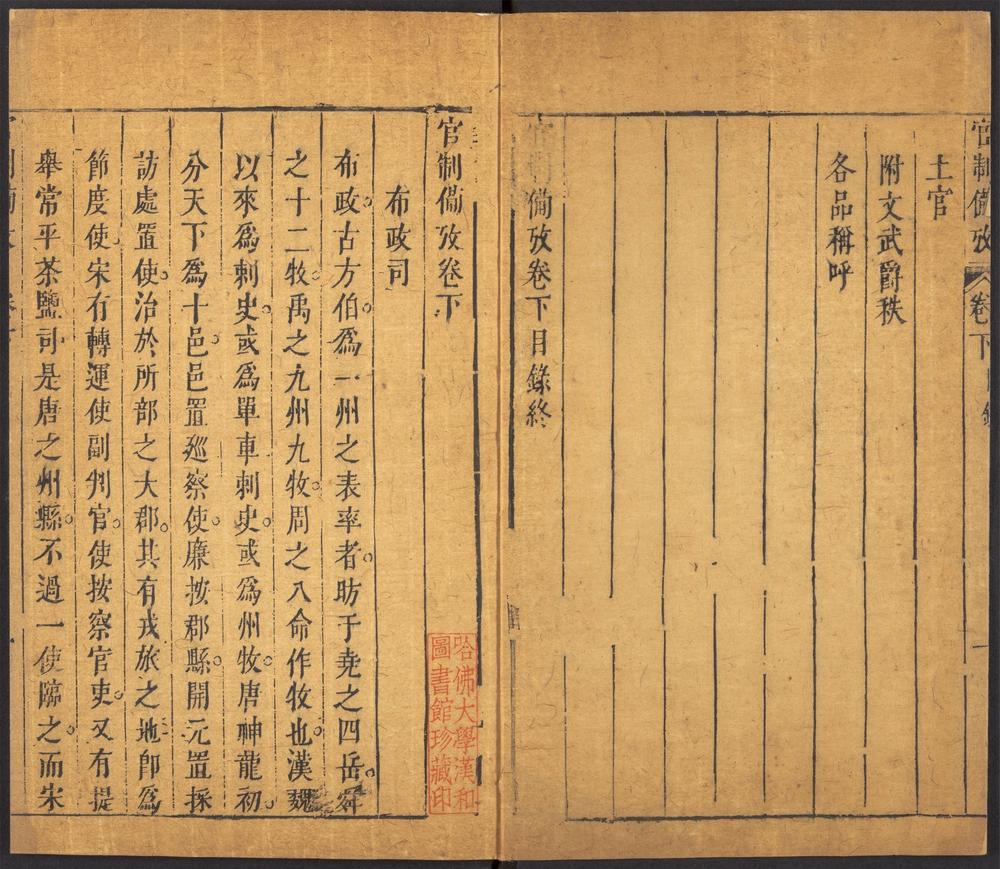 官制備攷
卷下目錄
一
土官
附文武爵秩
各品稱呼
官制備攷卷下目錄終
官制備攷卷下
布政司
布政古方伯爲一州之表率者昉于堯之四岳舜
之十二牧禹之九州九牧周之八命作牧也漢魏
以來爲刺史或爲單車刺史或爲州牧唐神龍初
分天下爲十邑邑置廵察使廉按郡縣開元置採
訪處置使治於所部之大郡其有戎旅之地卽爲
節度使宋有轉運使副判官使按察官吏又有提
舉常平茶鹽司是唐之州縣不過一使臨之而宋
哈佛大學漢和
圖書館珍藏印